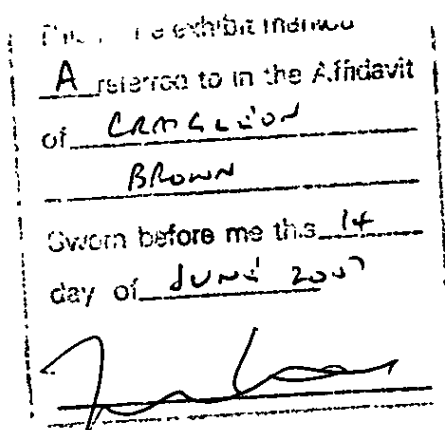 exhibit marked
A referred to in the Affidavit
of CRAIG LEON
BROWN
Sworn before me this 14
day of JUNE 2007